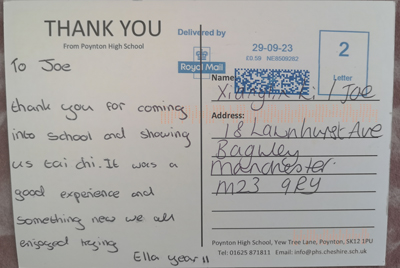 THANK YOU
From Poynton High School
To Joe
thank you for coming
into school and showing
us tai chi. It was a
good experience and
something new we all
engoyed trying
Ella year 11
Delivered by
Royal Mail
29-09-23
£0.58
2
Letter
Name:
Li / Joe
Address:
18 Lawnhurst Ave
Bagwley
Manchester
M23 9RY
Poynton High School, Yew Tree Lane, Poynton, SK12 1PU.
Tel: 01625 871811 Email: info@phs.cheshire.sch.uk